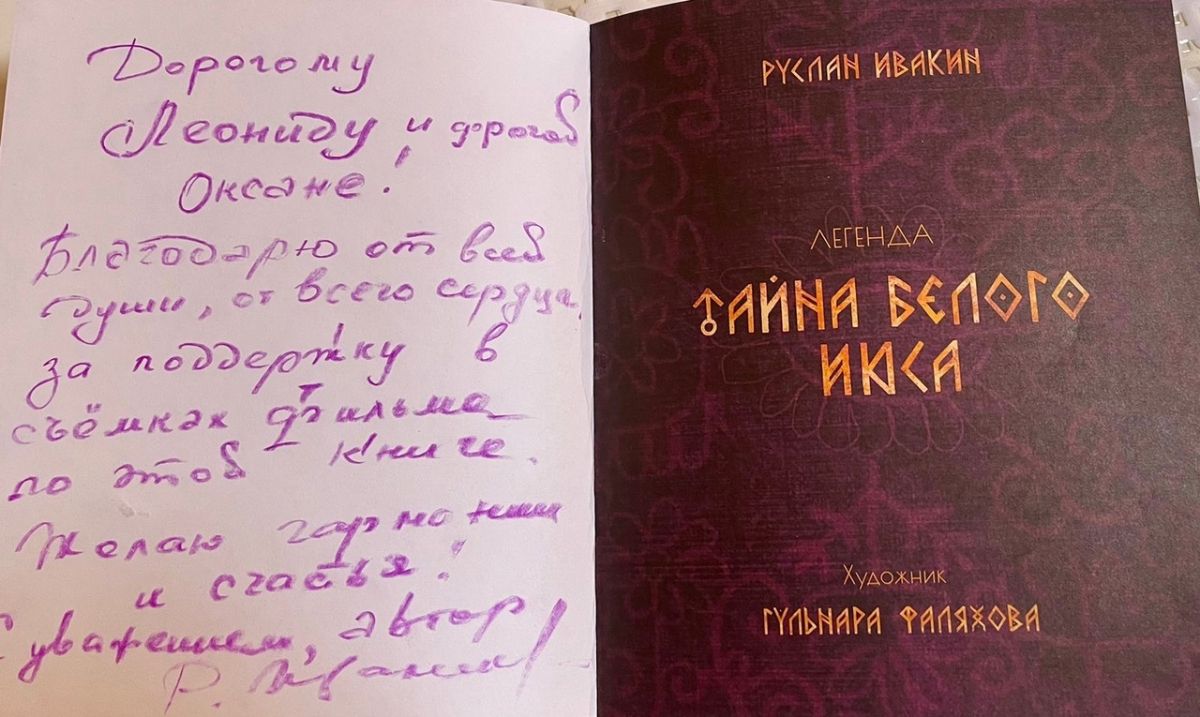 Дорогому
Леониду и дорогой
Оксане!
Благодарю от всей
души, от всего сердца
за поддержку в
съёмках фильма
по этой книге.
Желаю гармонии
и счастья!
С уважением, автор
Р. Ивакин
РУСЛАН ИВАКИН
ЛЕГЕНДА
ТАЙНА БЕЛОГО
ИЮСА
Художник
ГУЛЬНАРА ФАЛЯХОВА